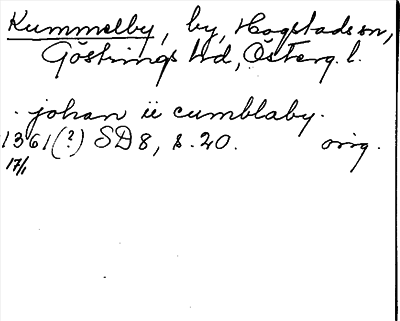 Kummelby, by, Hogstads sn,
Göstrings hd, Österg. l.
. johan ii cumblaby.
1361(?) SD 8, s. 20. orig.
17/1